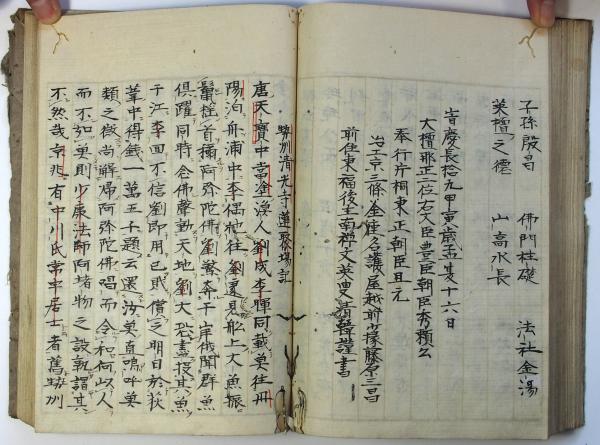 子孫殷昌　佛門柱礎　法社金湯
英檀之德　山高水長
旹慶長拾九甲寅歳孟夏十六日
大檀那正二位右大臣豊臣朝臣秀頼公
奉行片桐東正朝臣且元
冶工京三條釜座名護屋越前少掾藤原三昌
前住東福後住南禅文英叟清韓謹書
州清光寺蓮聚場記
唐天寶中當塗漁人劉成李暉同載魚往丹
陽泊舟浦中李偶他往劉遽見舩上大魚振
鬣揺首稱阿弥陀佛劉驚奔于岸俄聞群魚
俱躍同時念佛聲動天地劉大恐盡投其魚
于江李回不信劉即用己貲償之明日於荻
葦中得錢一萬五千題云還汝魚直嗚呼魚
類之微尚解帰阿弥陀佛唱而令和何以人
而不如魚則少康法師阿堵物之設孰謂其
不然哉京兆有中川氏常牢居士者舊州